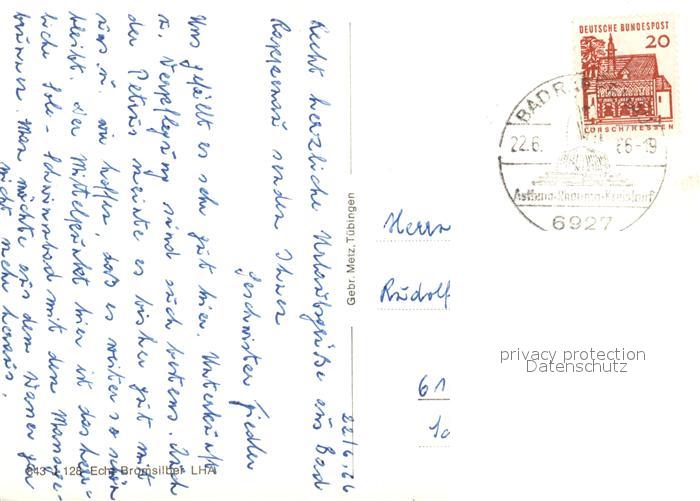 Recht herzliche Urlaubsgrüße aus Bad
Rappenau senden Ihnen
Geschwister Fiedler
22/6.66
Uns gefällt es sehr gut hier. Unterkunft
u. Verpflegung sind auch bestens. Auch
der Petrus meinte es bisher gut mit
uns u. wir hoffen, daß es weiter so schön
bleibt. Der Mittelpunkt hier ist das herr-
liche Sole-Schwimmbad mit den Massage-
brunnen. Man möchte aus dem Wasser gar
nicht mehr heraus.
128 Echt Bromsilber LHA
Gebr. Metz, Tübingen
Herrn
Rudolf
61
DEUTSCHE BUNDESPOST
20
LORSCH/HESSEN
BAD R
22.6. 66-19
Asthma-Rheuma-Kreislauf
6927
privacy protection
Datenschutz